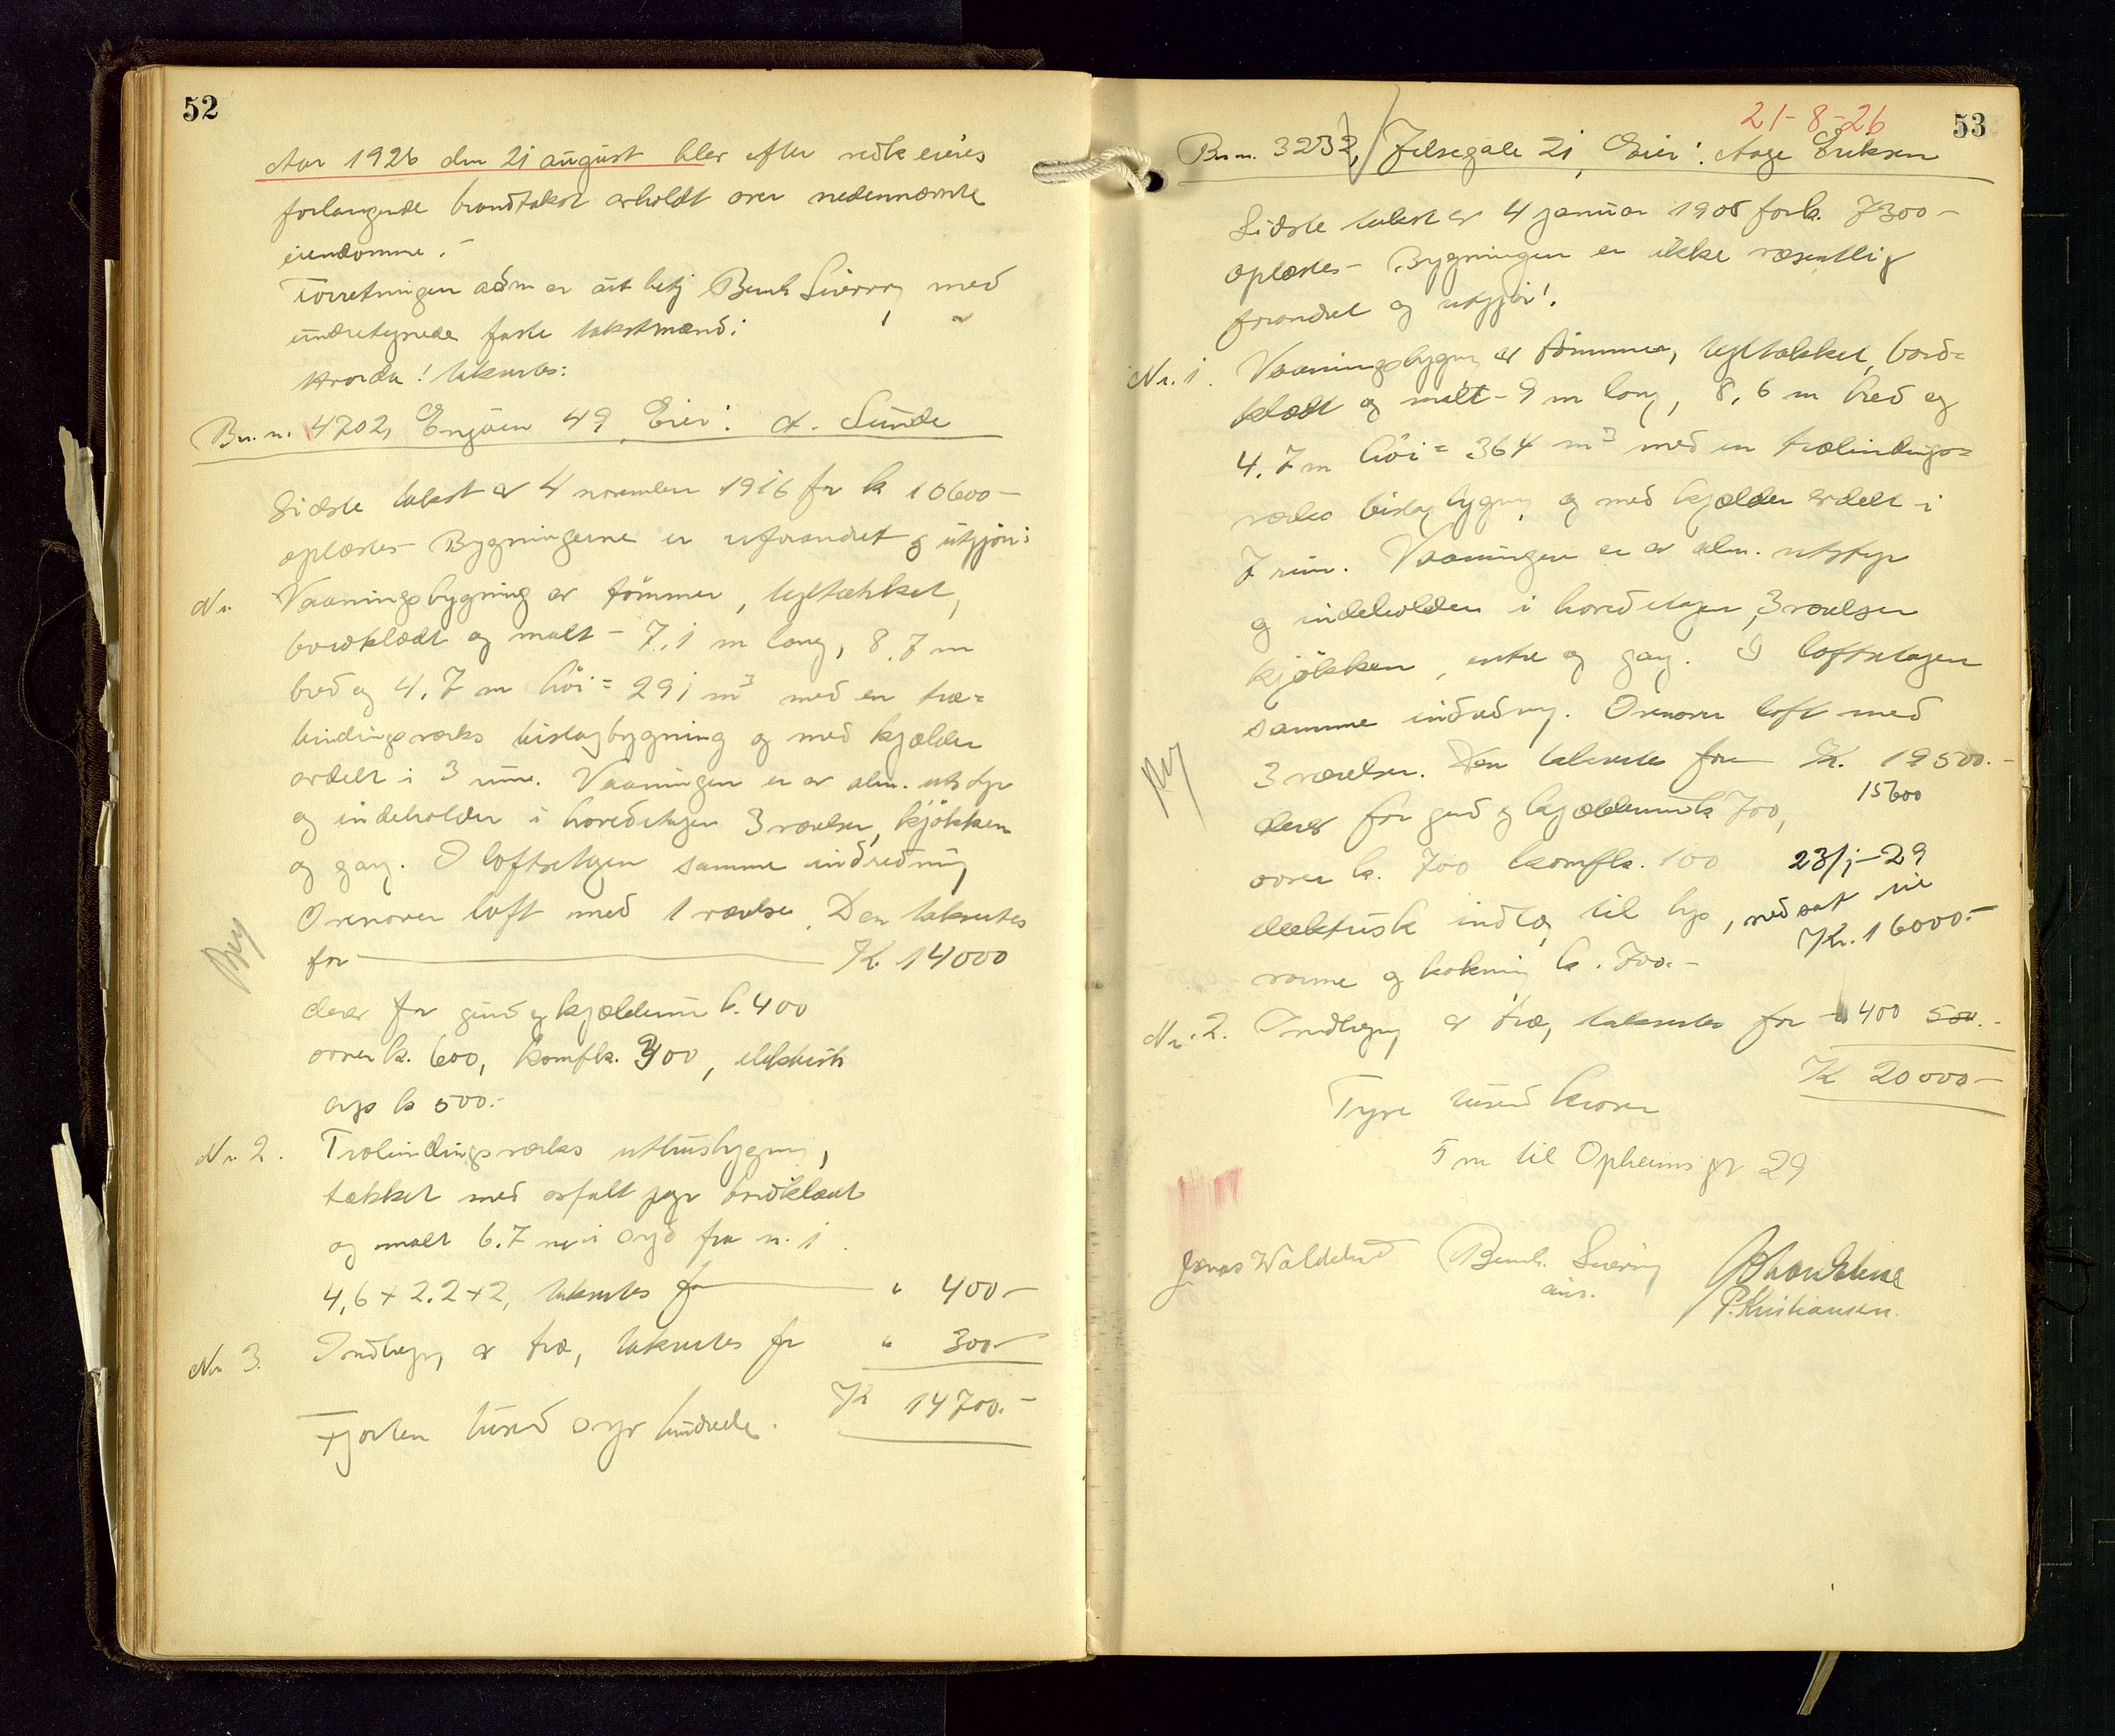 52
Aar 1926 den 21 august blev efter vedk eieres
forlangende brandtakst avholdt over nedennævnte
eiendomme.
Forretningen adm av ass betj Bernh Sivering med
undertegnede faste takstmænd:
Hvorda! takseres:
Br. n. 4702, Engöen 49 Eier: A. Sunde
Sidste takst av 4 november 1916 for k 10600-
oplæstes - Bygningerne er uforandret og utgjör:
Nr. Vaaningsbygning av tömmer, tegltækket,
bordklædt og malt - 7,1 m lang, 8,7 m
bred og 4,7 m höi = 291 m3 med en træ=
bindingsverks bislagbygning og med kjælder
avdelt i 3 rum. Vaaningen er av alm. utstyr
og indeholder i hovedetagen 3 værelser, kjökken
og gang. I loftsetagen samme indredning
Ovenover loft med 1 værelse. Den takseres
for Kr. 14000
derav for grund og kjældermur k. 400
ovner k. 600, komfk. 300, elektrisk
lys k 500.-
Nr 2. Træbindingsverks uthusbygning,
tækket med asfalt pap bordklædt
og malt 6.7 m i syd fra n. 1.
4,6 + 2.2 + 2, takseres for " 400-
Nr 3. Indhegn av træ, takseres for " 300-
Kr 14700.-
Fjorten tusend syv hundrede.
21-8-26
53
Br. n. 3232, Jelsegate 21, Eier: Aage Eriksen
Sidste takst av 4 januar 1908 for k. 7300-
oplæstes - Bygningen er ikke væsentlig
forandret og utgjör!.
Nr. 1. Vaaningsbygn av tömmer, tegltækket, bord=
klædt og malt - 9 m lang, 8,6 m bred og
4.7 m höi = 364 m3 med en træbindings=
verks bislagbygn og med kjælder avdelt i
7 rum. Vaaningen er av alm. utstyr
og indeholder i hovedetagen, 3 værelser
kjökken, entre og gang. I loftsetagen
samme indredning. Ovenover loft med
3 værelser. Den takseres for Kr. 19500.-
15600
derav for grund og kjældermur k 700,
ovner k. 700 komfk. 100
23/1-29
elektrisk indlæg til lys, nedsat til
Kr. 16000.-
varme og kokning k. 700.-
Nr. 2. Indhegn av træ, takseres for 400 500.-
Kr 20000-
Tyve tusend kroner
5 m til Opheims gt 29
Jonas Waldeland Bernh. Sivering
ass.
P. Kristiansen.